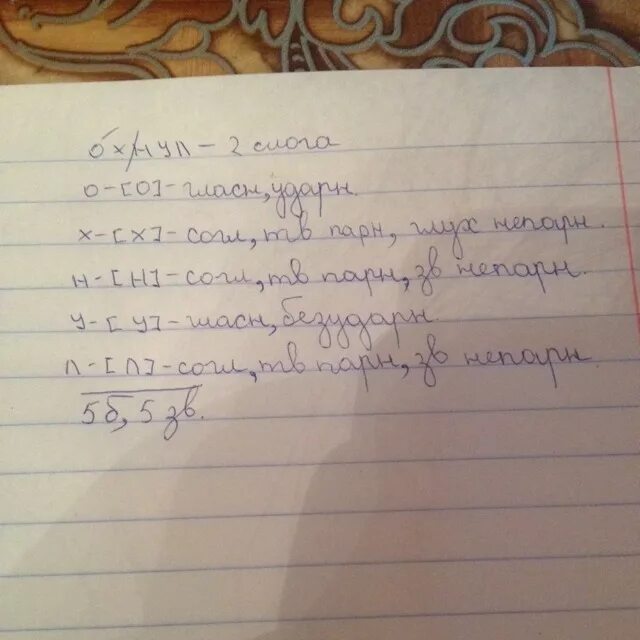 о́х/нул – 2 слога
о – [о] – гласн, ударн.
х – [х] – согл, тв парн, глух непарн.
н – [н] – согл, тв парн, зв непарн.
у – [у] – гласн, безударн.
л – [л] – согл, тв парн, зв непарн.
5 б, 5 зв.